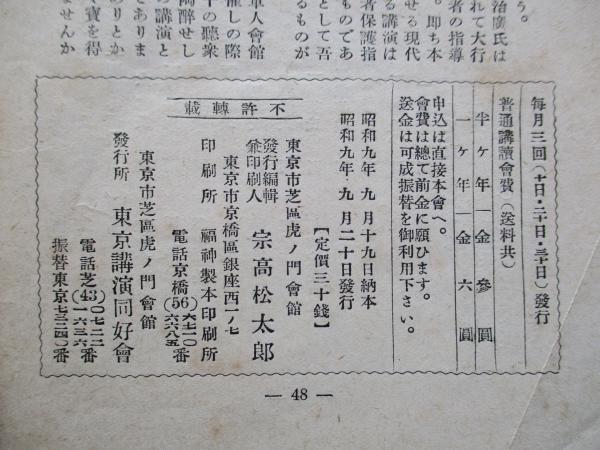 う。
治廣氏は
れて大行
者の指導
。即ち本
せる現代
る講演は
者保護指
ものであ
として吾
るものが
軍人會館
催しの際
千の聽衆
陶醉せし
の講演と
でありま
ありとか
く寶を得
ませんか
每月三回(十日・二十日・三十日)發行
普通講讀會費(送料共)
半ヶ年 金參圓
一ヶ年 金六圓
申込は直接本會へ。
會費は總て前金に願ひます。
送金は可成振替を御利用下さい。
不許轉載
昭和九年 九月十九日納本
昭和九年・九月二十日發行
【定價三十錢】
東京市芝區虎ノ門會館
發行編輯兼印刷人 宗高松太郎
東京市京橋區銀座西一ノ七
印刷所 福神製本印刷所
電話京橋(56)六七一〇 六六八五番
東京市芝區虎ノ門會館
發行所 東京講演同好會
電話芝(43)〇七二二 一六三六番
振替東京七三二四〇番
— 48 —